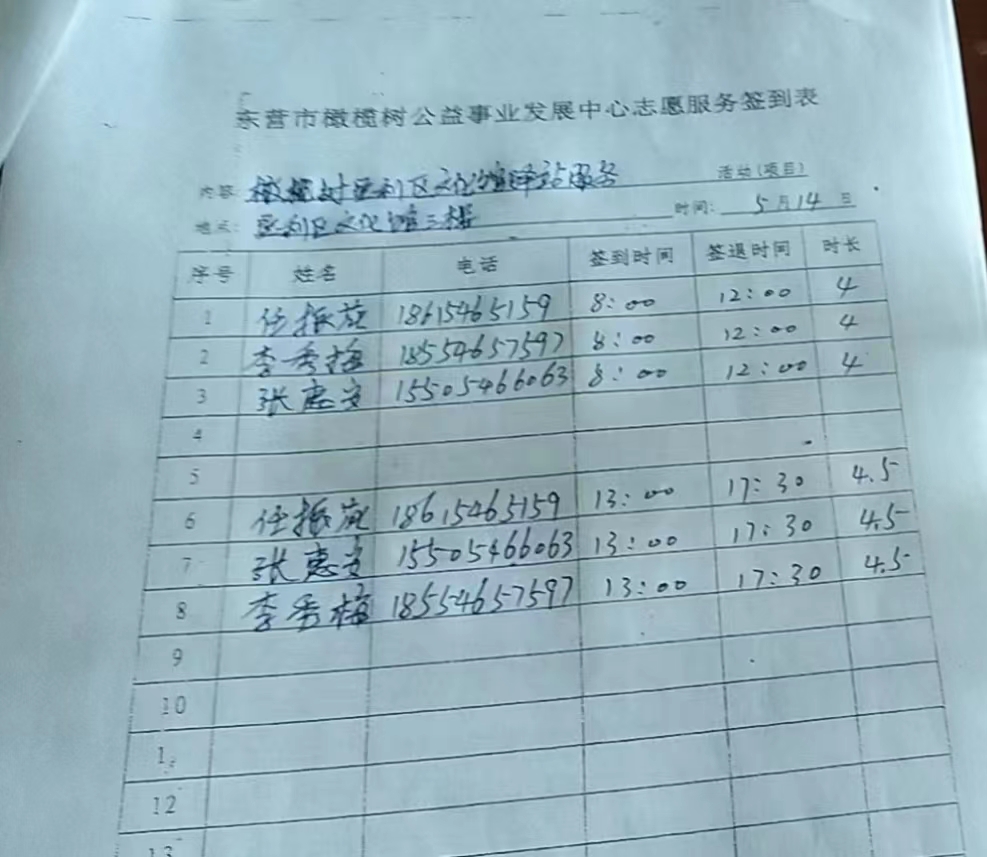 东营市橄榄树公益事业发展中心志愿服务签到表
内容: 橄榄树垦利区文化馆驿站服务 活动(项目)
地点: 垦利区文化馆三楼 时间: 5月14日
序号 姓名 电话 签到时间 签退时间 时长
1 任振 18615465159 8:00 12:00 4
2 李秀梅 18554657597 8:00 12:00 4
3 张惠安 15505466063 8:00 12:00 4
4
5
6 任振 18615465159 13:00 17:30 4.5
7 张惠安 15505466063 13:00 17:30 4.5
8 李秀梅 18554657597 13:00 17:30 4.5
9
10
12
13